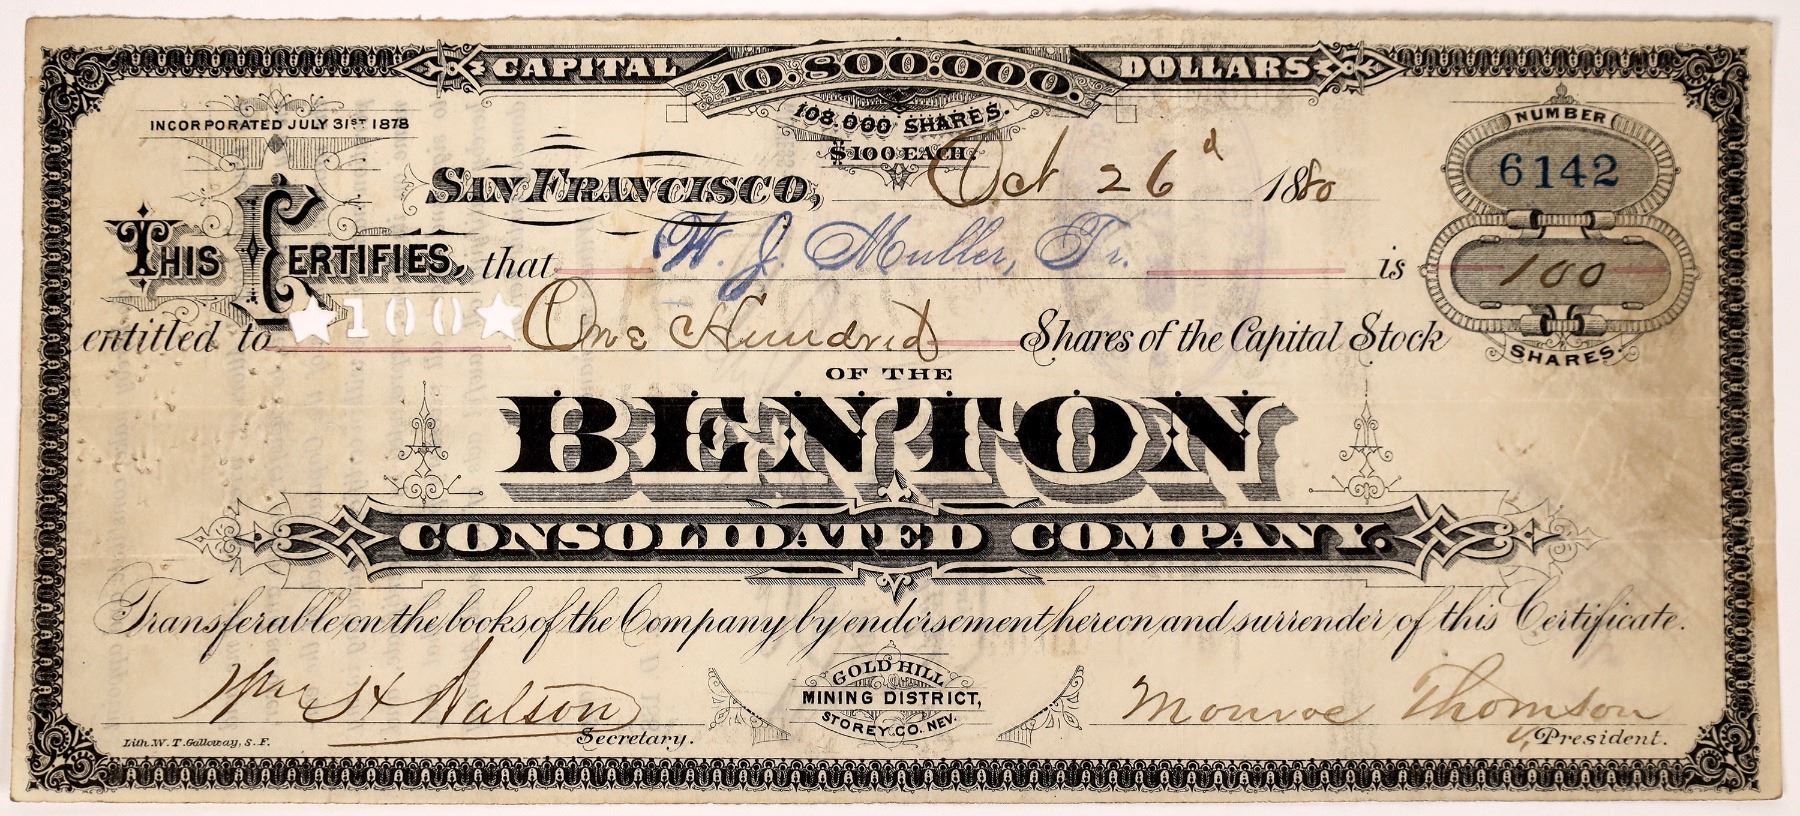 CAPITAL 10.800.000. DOLLARS
108.000 SHARES.
$100 EACH.
INCORPORATED JULY 31ST 1878
NUMBER
6142
SAN FRANCISCO, Oct 26 1880
THIS CERTIFIES, that W. J. Muller, Tr. is
100
SHARES.
entitled to ★100★ One Hundred Shares of the Capital Stock
OF THE
BENTON
CONSOLIDATED COMPANY.
Transferable on the books of the Company by endorsement hereon and surrender of this Certificate.
Wm H Watson
Secretary.
GOLD HILL
MINING DISTRICT,
STOREY. CO. NEV.
Monroe Thomson
V. President.
Lith. W. T. Galloway, S. F.